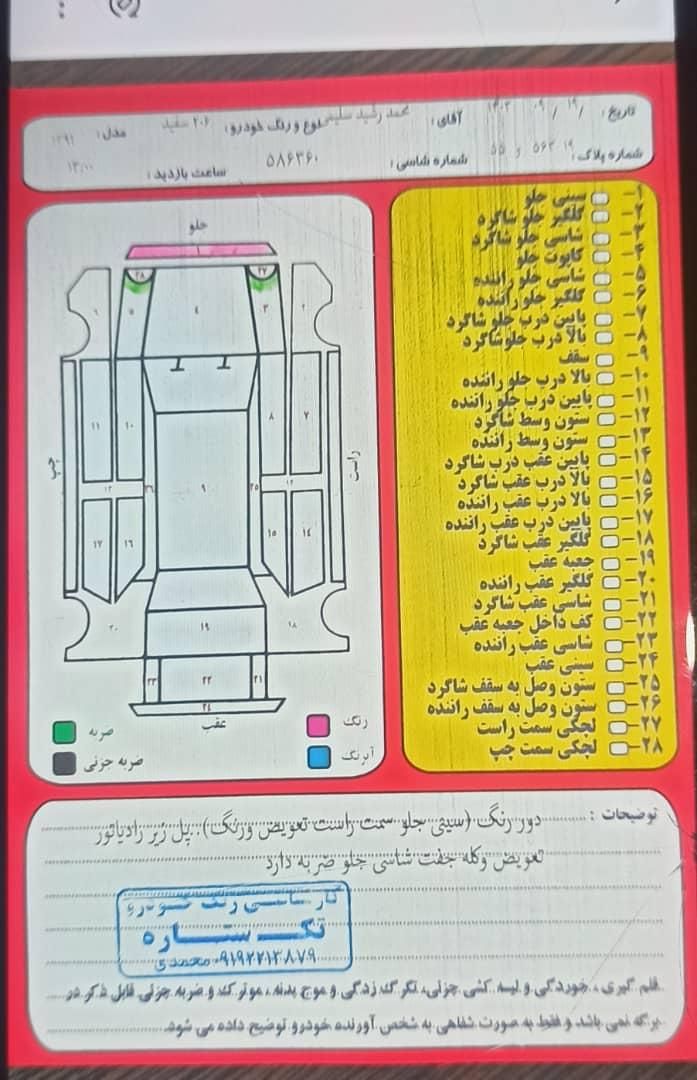 تاریخ: ۱۴۰۳ / ۰۹ / ۱۹
آقای: محمد رشید سلیمی
نوع و رنگ خودرو: ۲۰۶ سفید
مدل: ۱۳۹۱
شماره پلاک: ۱۹ ۵۶۳ و ۵۵
شماره شاسی: ۵۸۶۳۶۰
ساعت بازدید: ۱۳:۰۰
۱- سینی جلو
۲- گلگیر جلو شاگرد
۳- شاسی جلو شاگرد
۴- کاپوت جلو
۵- شاسی جلو راننده
۶- گلگیر جلو راننده
۷- پایین درب جلو شاگرد
۸- بالا درب جلو شاگرد
۹- سقف
۱۰- بالا درب جلو راننده
۱۱- پایین درب جلو راننده
۱۲- ستون وسط شاگرد
۱۳- ستون وسط راننده
۱۴- پایین عقب درب شاگرد
۱۵- بالا درب عقب شاگرد
۱۶- بالا درب عقب راننده
۱۷- پایین درب عقب راننده
۱۸- گلگیر عقب شاگرد
۱۹- جعبه عقب
۲۰- گلگیر عقب راننده
۲۱- شاسی عقب شاگرد
۲۲- کف داخل جعبه عقب
۲۳- شاسی عقب راننده
۲۴- سینی عقب
۲۵- ستون وصل به سقف شاگرد
۲۶- ستون وصل به سقف راننده
۲۷- لچکی سمت راست
۲۸- لچکی سمت چپ
جلو
۱
۲۸ ۲۷
۶ ۵ ۴ ۳ ۲
چپ
راست
۱۱ ۱۰ ۸ ۷
۱۳ ۲۶ ۹ ۲۵ ۱۲
۱۷ ۱۶ ۱۵ ۱۴
۲۰ ۱۹ ۱۸
۲۳ ۲۲ ۲۱
۲۴
عقب
رنگ
ضربه
آبرنگ
ضربه جزئی
توضیحات: دور رنگ (سینی جلو سمت راست تعویض ورنگ). پل زیر رادیاتور
تعویض وکله جفت شاسی جلو ضربه دارد
کارشناسی رنگ خودرو
تک ستاره
۰۹۱۹۲۲۱۳۸۷۹ محمدی
قلم گیری، خوردگی و لیسه کشی جزئی، تگرگ زدگی و موج بدنه، مو ترک و ضربه جزئی قابل ذکر در
برگه نمی باشد و فقط به صورت شفاهی به شخص آورنده خودرو توضیح داده می شود.